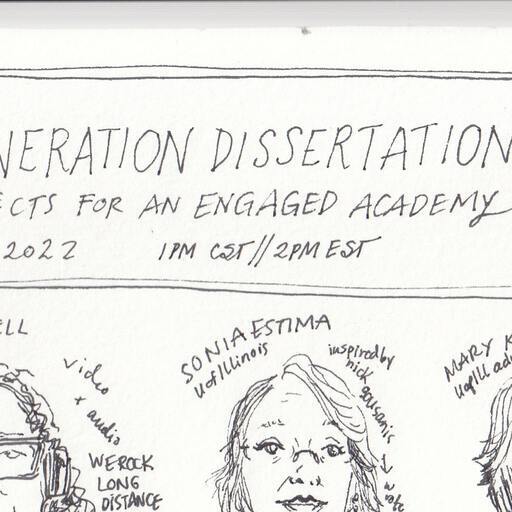 NERATION DISSERTATION
ECTS FOR AN ENGAGED ACADEMY
2022 1PM CST//2PM EST
ELL
video
+ audio
WEROCK
LONG
DISTANCE
SONIA ESTIMA
UofIllinois
inspired by
nick sousanis
MARY K
UofIll